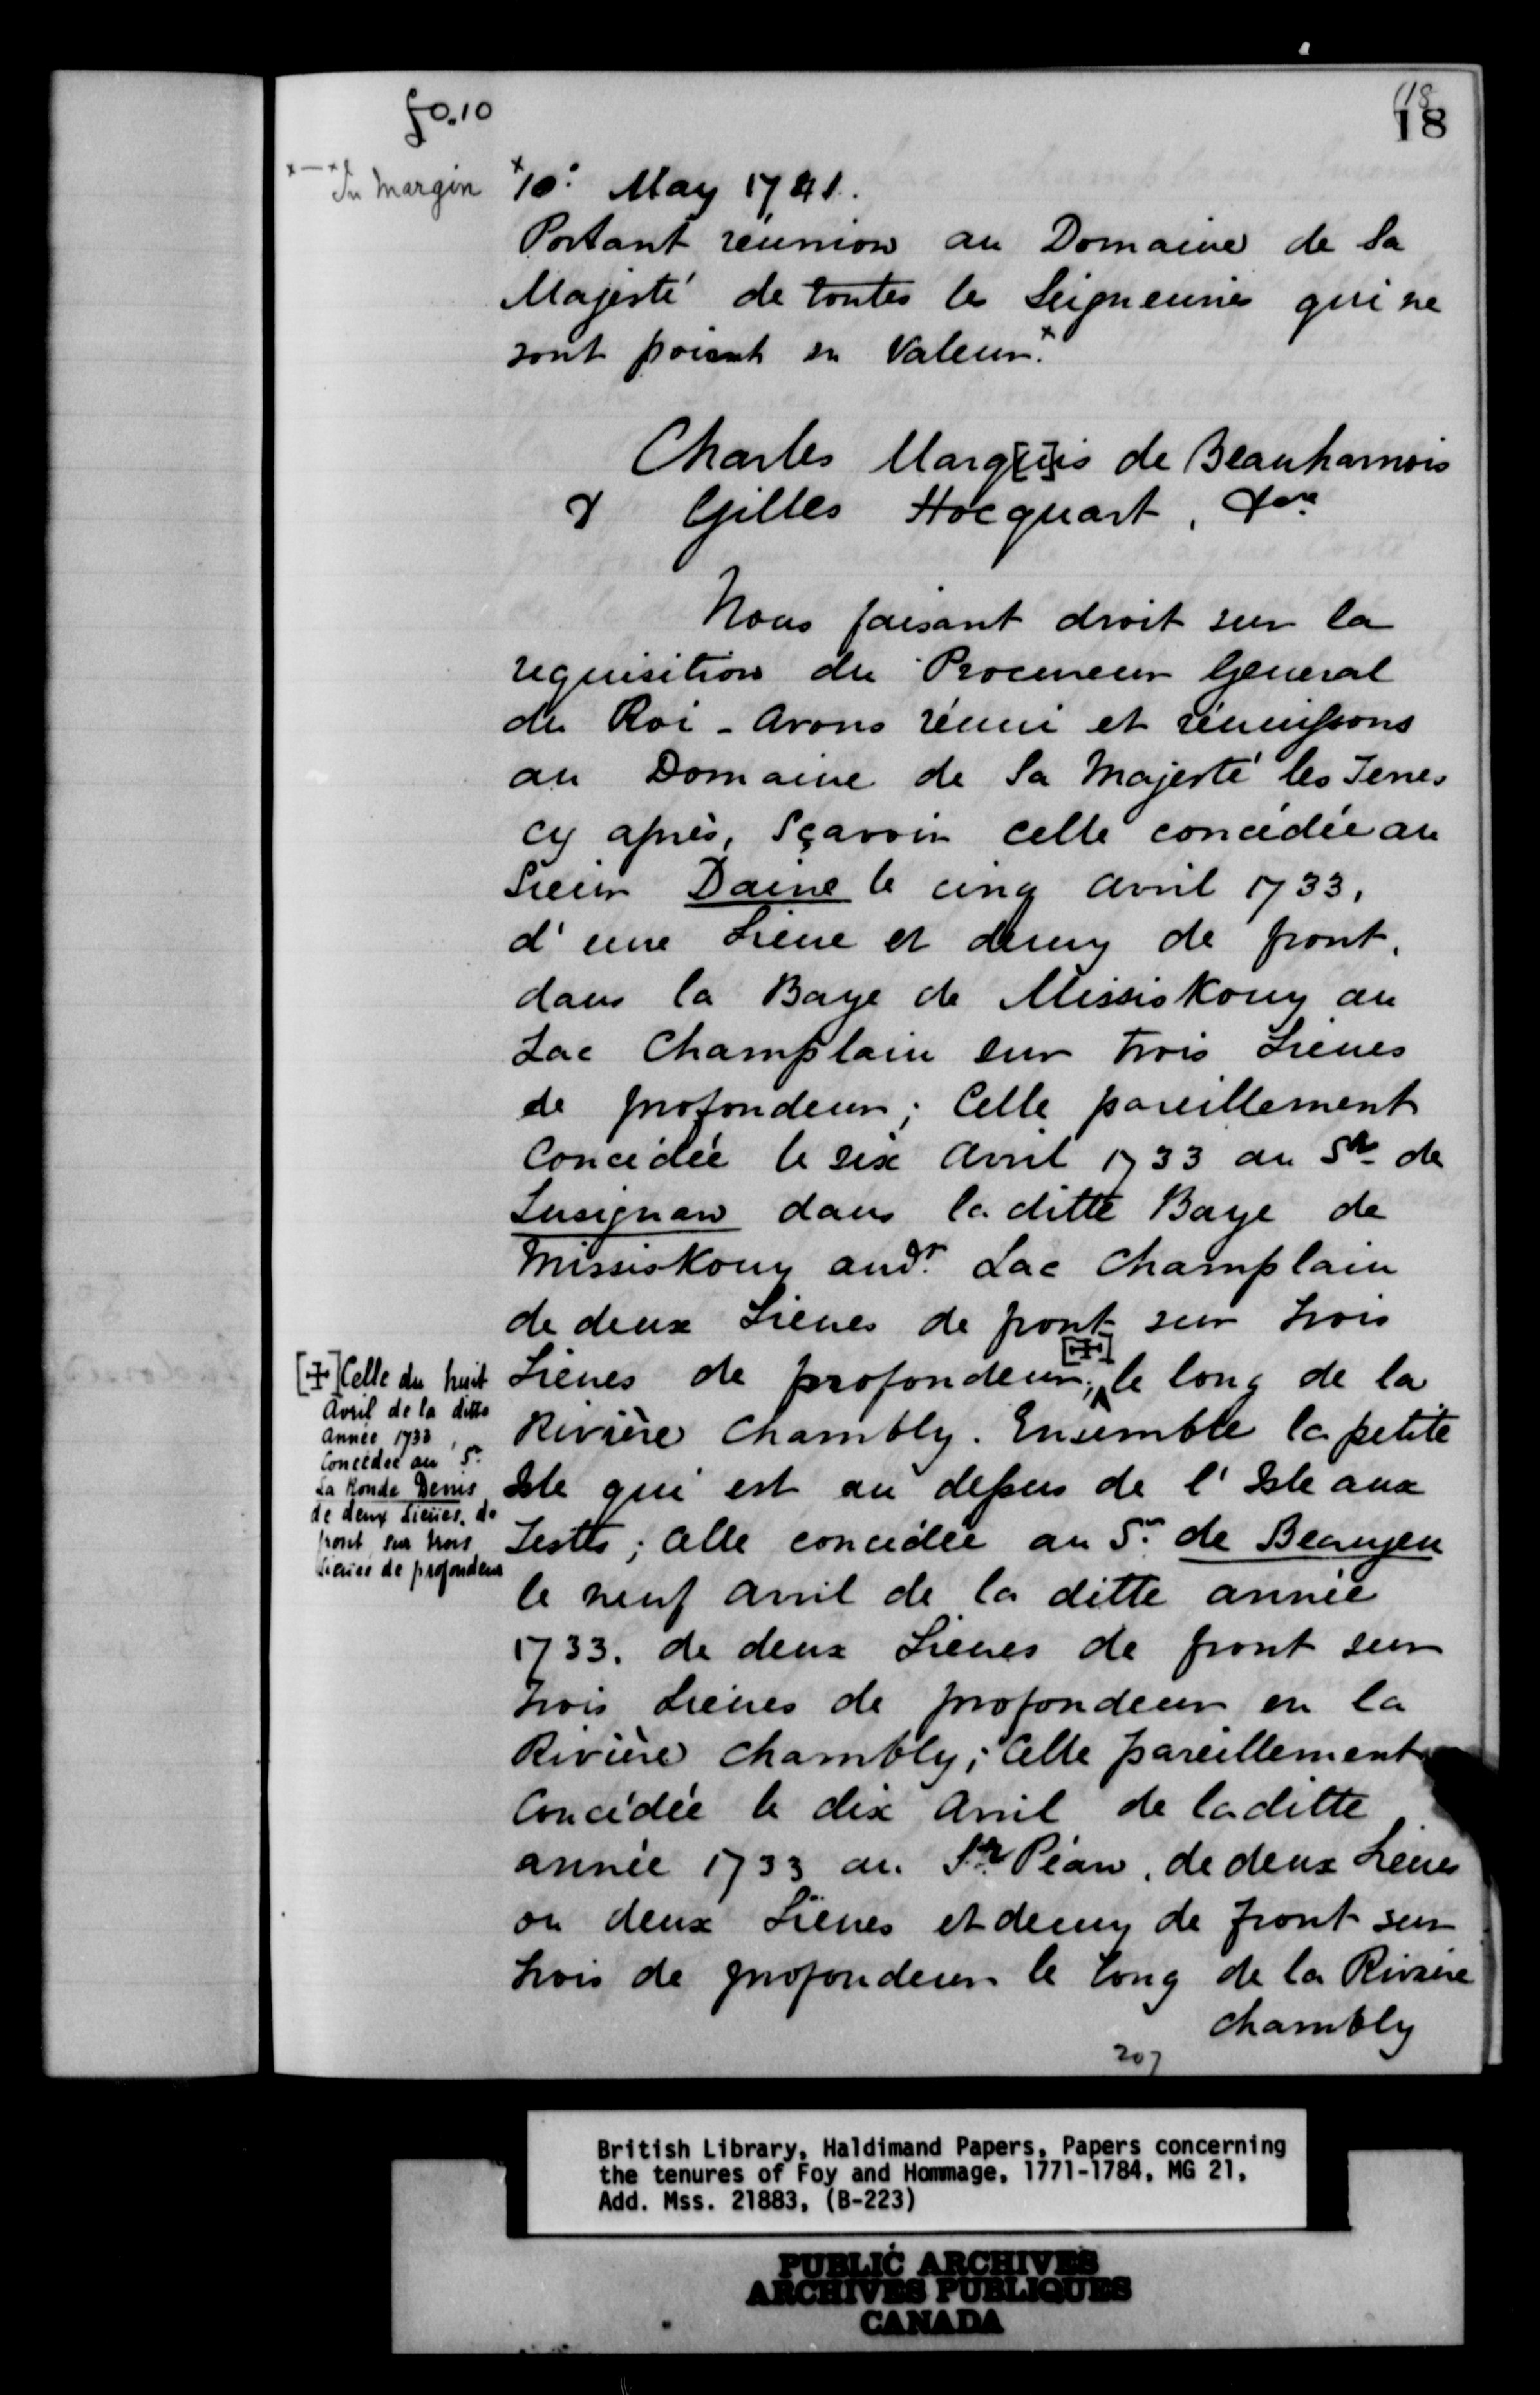 fo.10
18
18
x—x In Margin
x10.° May 1741.
Portant réunion au Domaine de Sa
Majesté de toutes les Seigneuries qui ne
sont point en Valeur.x
Charles Marq[u]is de Beauharnois
& Gilles Hocquart, &ca
Nous faisant droit sur la
requisition du Procureur General
du Roi - Avons réuni et réunissons
au Domaine de Sa Majesté les Terres
cy après, Sçavoir celle concédée au
Sieur Daine le cinq Avril 1733,
d'une Lieue et demy de front,
dans la Baye de Missiskouy au
Lac Champlain sur trois Lieues
de profondeur; Celle pareillement
Concédée le six Avril 1733 au Sr. de
Lusignan dans laditte Baye de
Missiskouy aud.t Lac Champlain
de deux Lieues de front sur trois
Lieues de profondeur; [+] le long de la
[+] Celle du huit
Avril de la ditte
Année 1733,
Concédée au Sr.
La Ronde Denis
de deux Lieues, de
front sur trois
Lieues de profondeur
Rivière Chambly. Ensemble la petite
Isle qui est au dessus de l'Isle aux
Testes; Celle concédée au Sr. de Beaujeu
le neuf Avril de la ditte année
1733. de deux Lieues de front sur
trois Lieues de profondeur en la
Rivière Chambly; Celle pareillement
Concédée le dix Avril de laditte
année 1733 au Sr. Péan, de deux Lieues
ou deux Lieues et demy de front sur
trois de profondeur le long de la Rivière
Chambly
207
British Library, Haldimand Papers, Papers concerning
the tenures of Foy and Hommage, 1771-1784, MG 21,
Add. Mss. 21883, (B-223)
PUBLIC ARCHIVES
ARCHIVES PUBLIQUES
CANADA